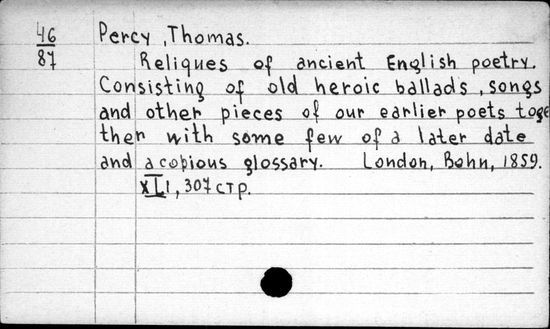 46
87
Percy, Thomas.
Reliques of ancient English poetry.
Consisting of old heroic ballads, songs
and other pieces of our earlier poets toge
ther with some few of a later date
and a copious glossary. London, Bohn, 1859.
XLI, 307 стр.